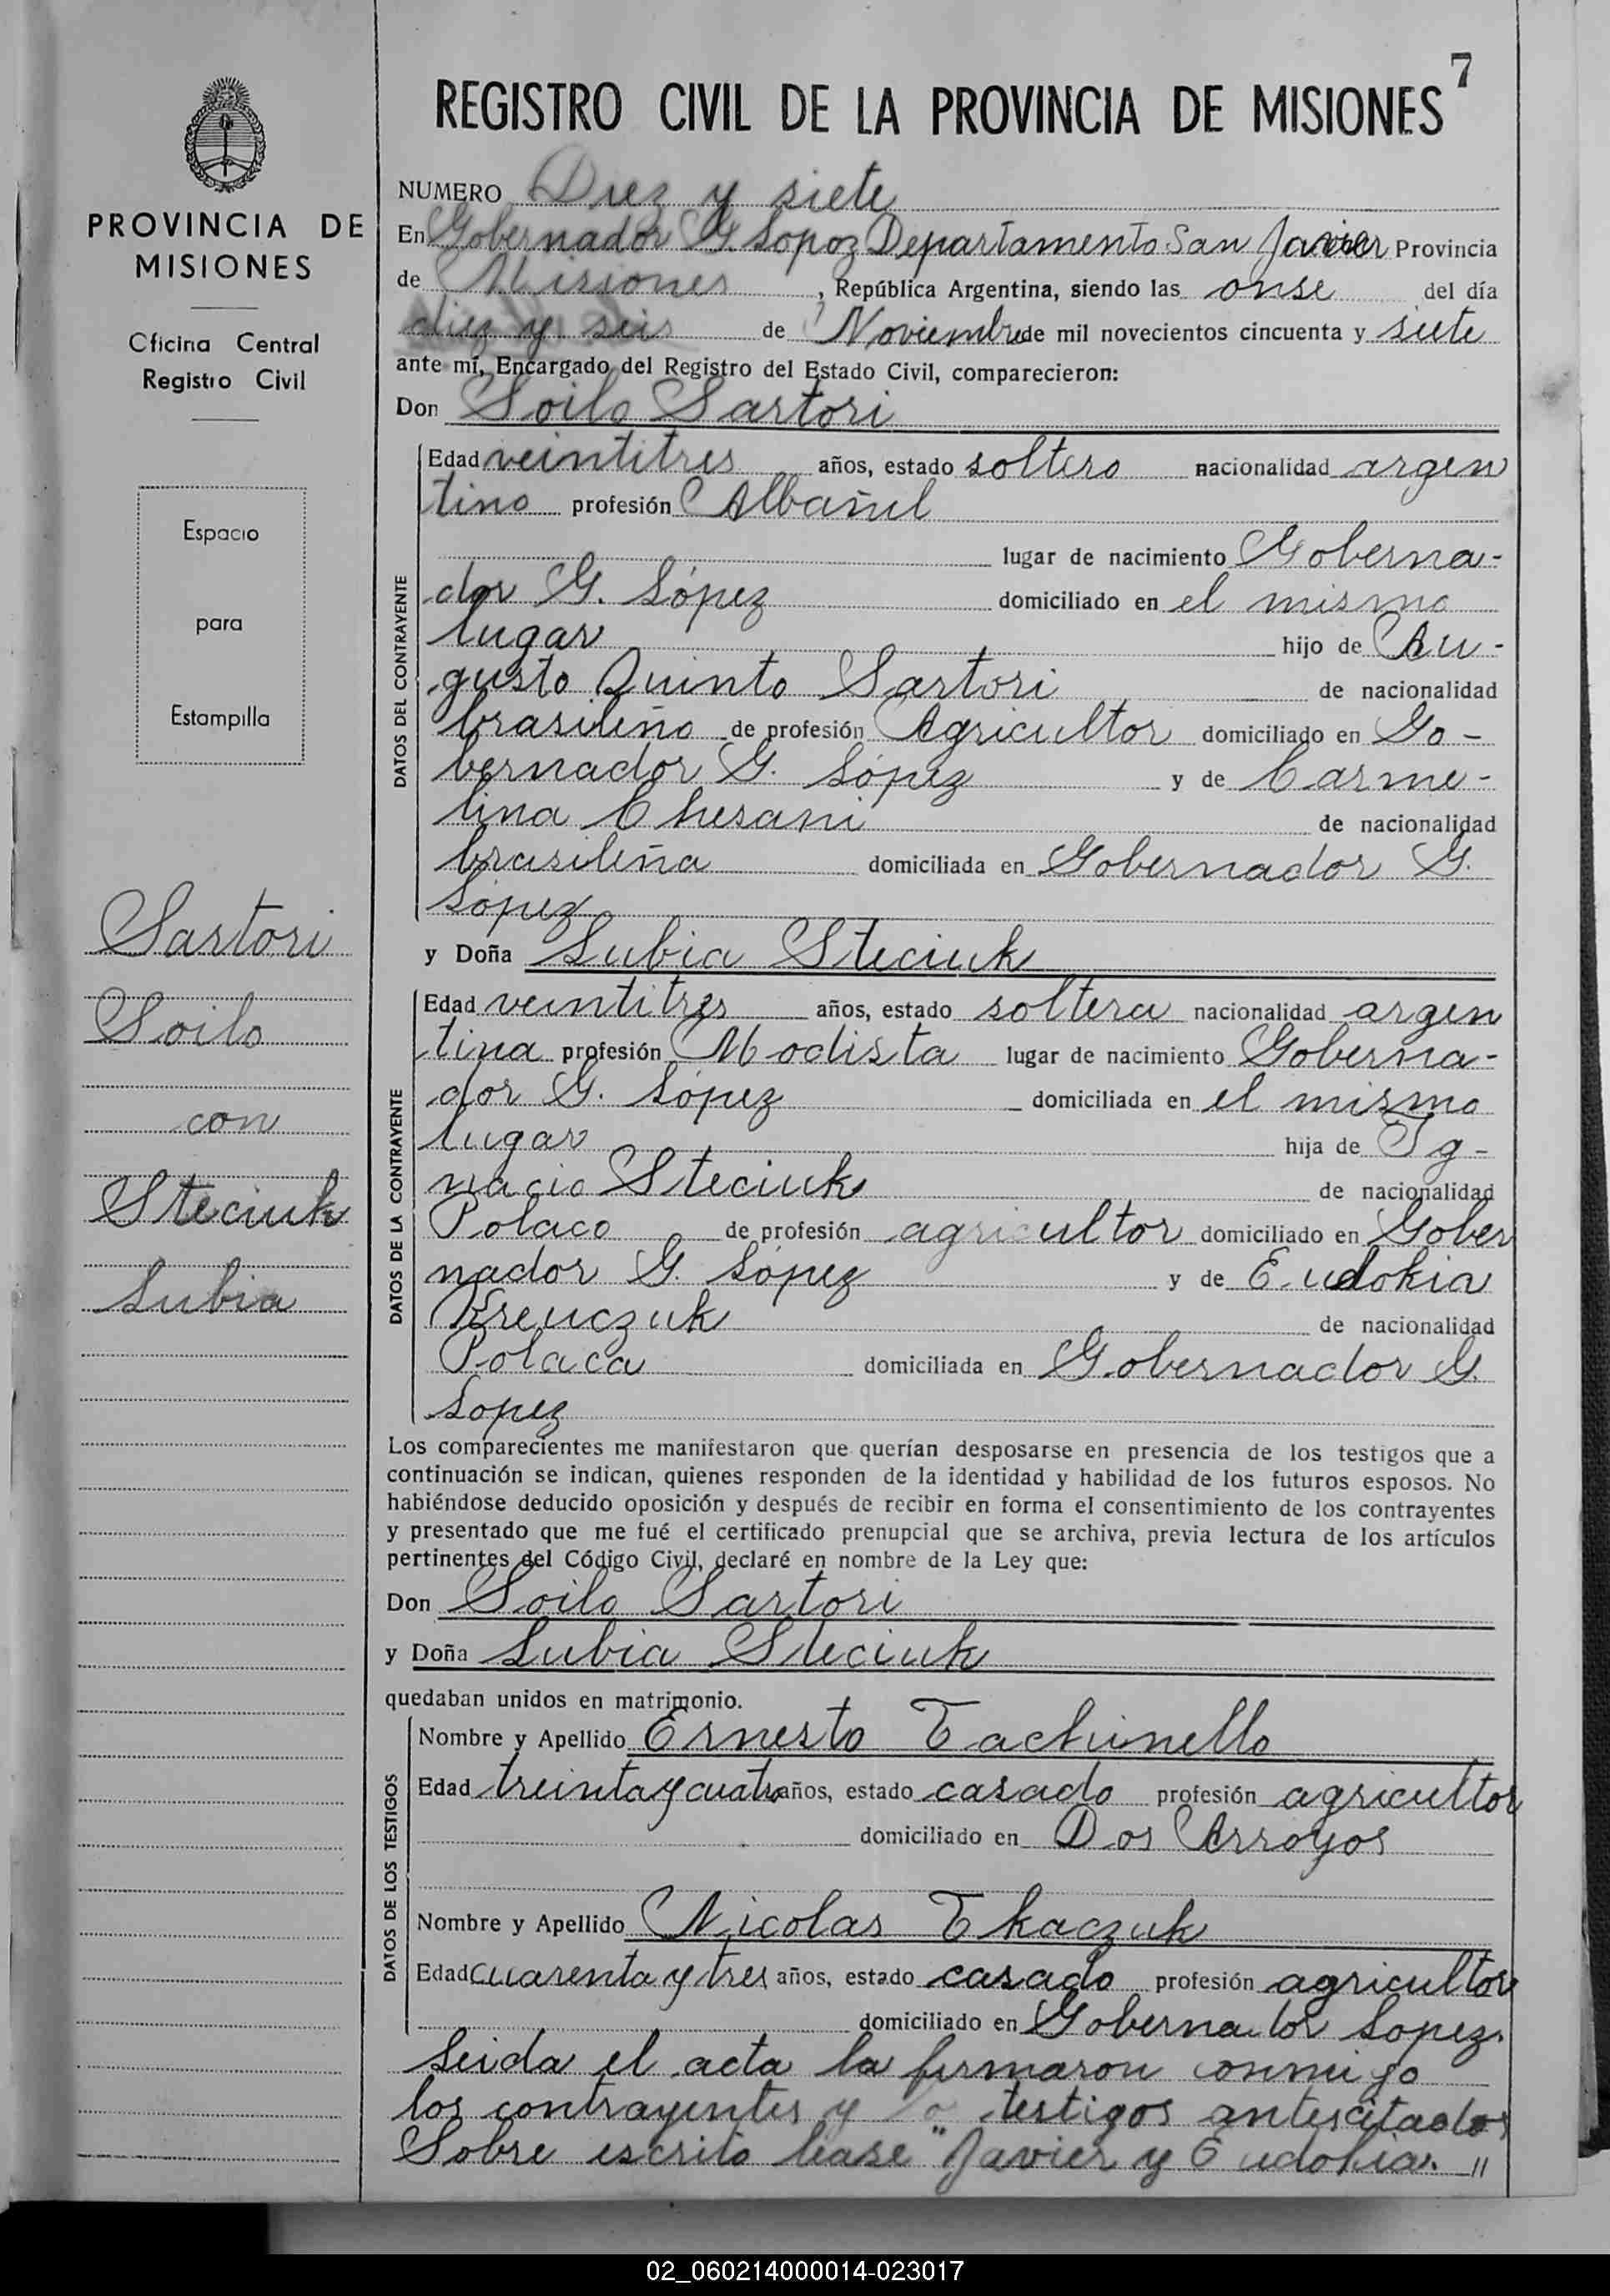 7
REGISTRO CIVIL DE LA PROVINCIA DE MISIONES
PROVINCIA DE
MISIONES
Oficina Central
Registro Civil
Espacio
para
Estampilla
Sartori
Soilo
con
Steciuk
Lubia
NUMERO Diez y siete
En Gobernador G. Lopoz Departamento San Javier Provincia
de Misiones, República Argentina, siendo las onse del día
diez y seis de Noviembre de mil novecientos cincuenta y siete
ante mí, Encargado del Registro del Estado Civil, comparecieron:
Don Soilo Sartori
DATOS DEL CONTRAYENTE
Edad veintitres años, estado soltero nacionalidad argen
tino profesión Albañil
lugar de nacimiento Goberna-
dor G. López domiciliado en el mismo
lugar hijo de Au-
gusto Quinto Sartori de nacionalidad
brasileño de profesión Agricultor domiciliado en Go-
bernador G. López y de Carme-
lina Chesani de nacionalidad
brasileña domiciliada en Gobernador G.
López
y Doña Lubia Steciuk
DATOS DE LA CONTRAYENTE
Edad veintitres años, estado soltera nacionalidad argen
tina profesión Modista lugar de nacimiento Goberna-
dor G. López domiciliada en el mismo
lugar hija de Ig-
nacio Steciuk de nacionalidad
Polaco de profesión agricultor domiciliado en Gober
nador G. López y de Eudokia
Kreuczuk de nacionalidad
Polaca domiciliada en Gobernador G.
Lopez
Los comparecientes me manifestaron que querían desposarse en presencia de los testigos que a
continuación se indican, quienes responden de la identidad y habilidad de los futuros esposos. No
habiéndose deducido oposición y después de recibir en forma el consentimiento de los contrayentes
y presentado que me fué el certificado prenupcial que se archiva, previa lectura de los artículos
pertinentes del Código Civil, declaré en nombre de la Ley que:
Don Soilo Sartori
y Doña Lubia Steciuk
quedaban unidos en matrimonio.
DATOS DE LOS TESTIGOS
Nombre y Apellido Ernesto Tachinello
Edad treinta y cuatro años, estado casado profesión agricultor
domiciliado en Dos Arroyos
Nombre y Apellido Nicolas Tkaczuk
Edad cuarenta y tres años, estado casado profesión agricultor
domiciliado en Gobernador Lopez.
Leida el acta la firmaron conmigo
los contrayentes y testigos antescitados
Sobre escrito léase "Javier y Eudokia."
02_060214000014-023017